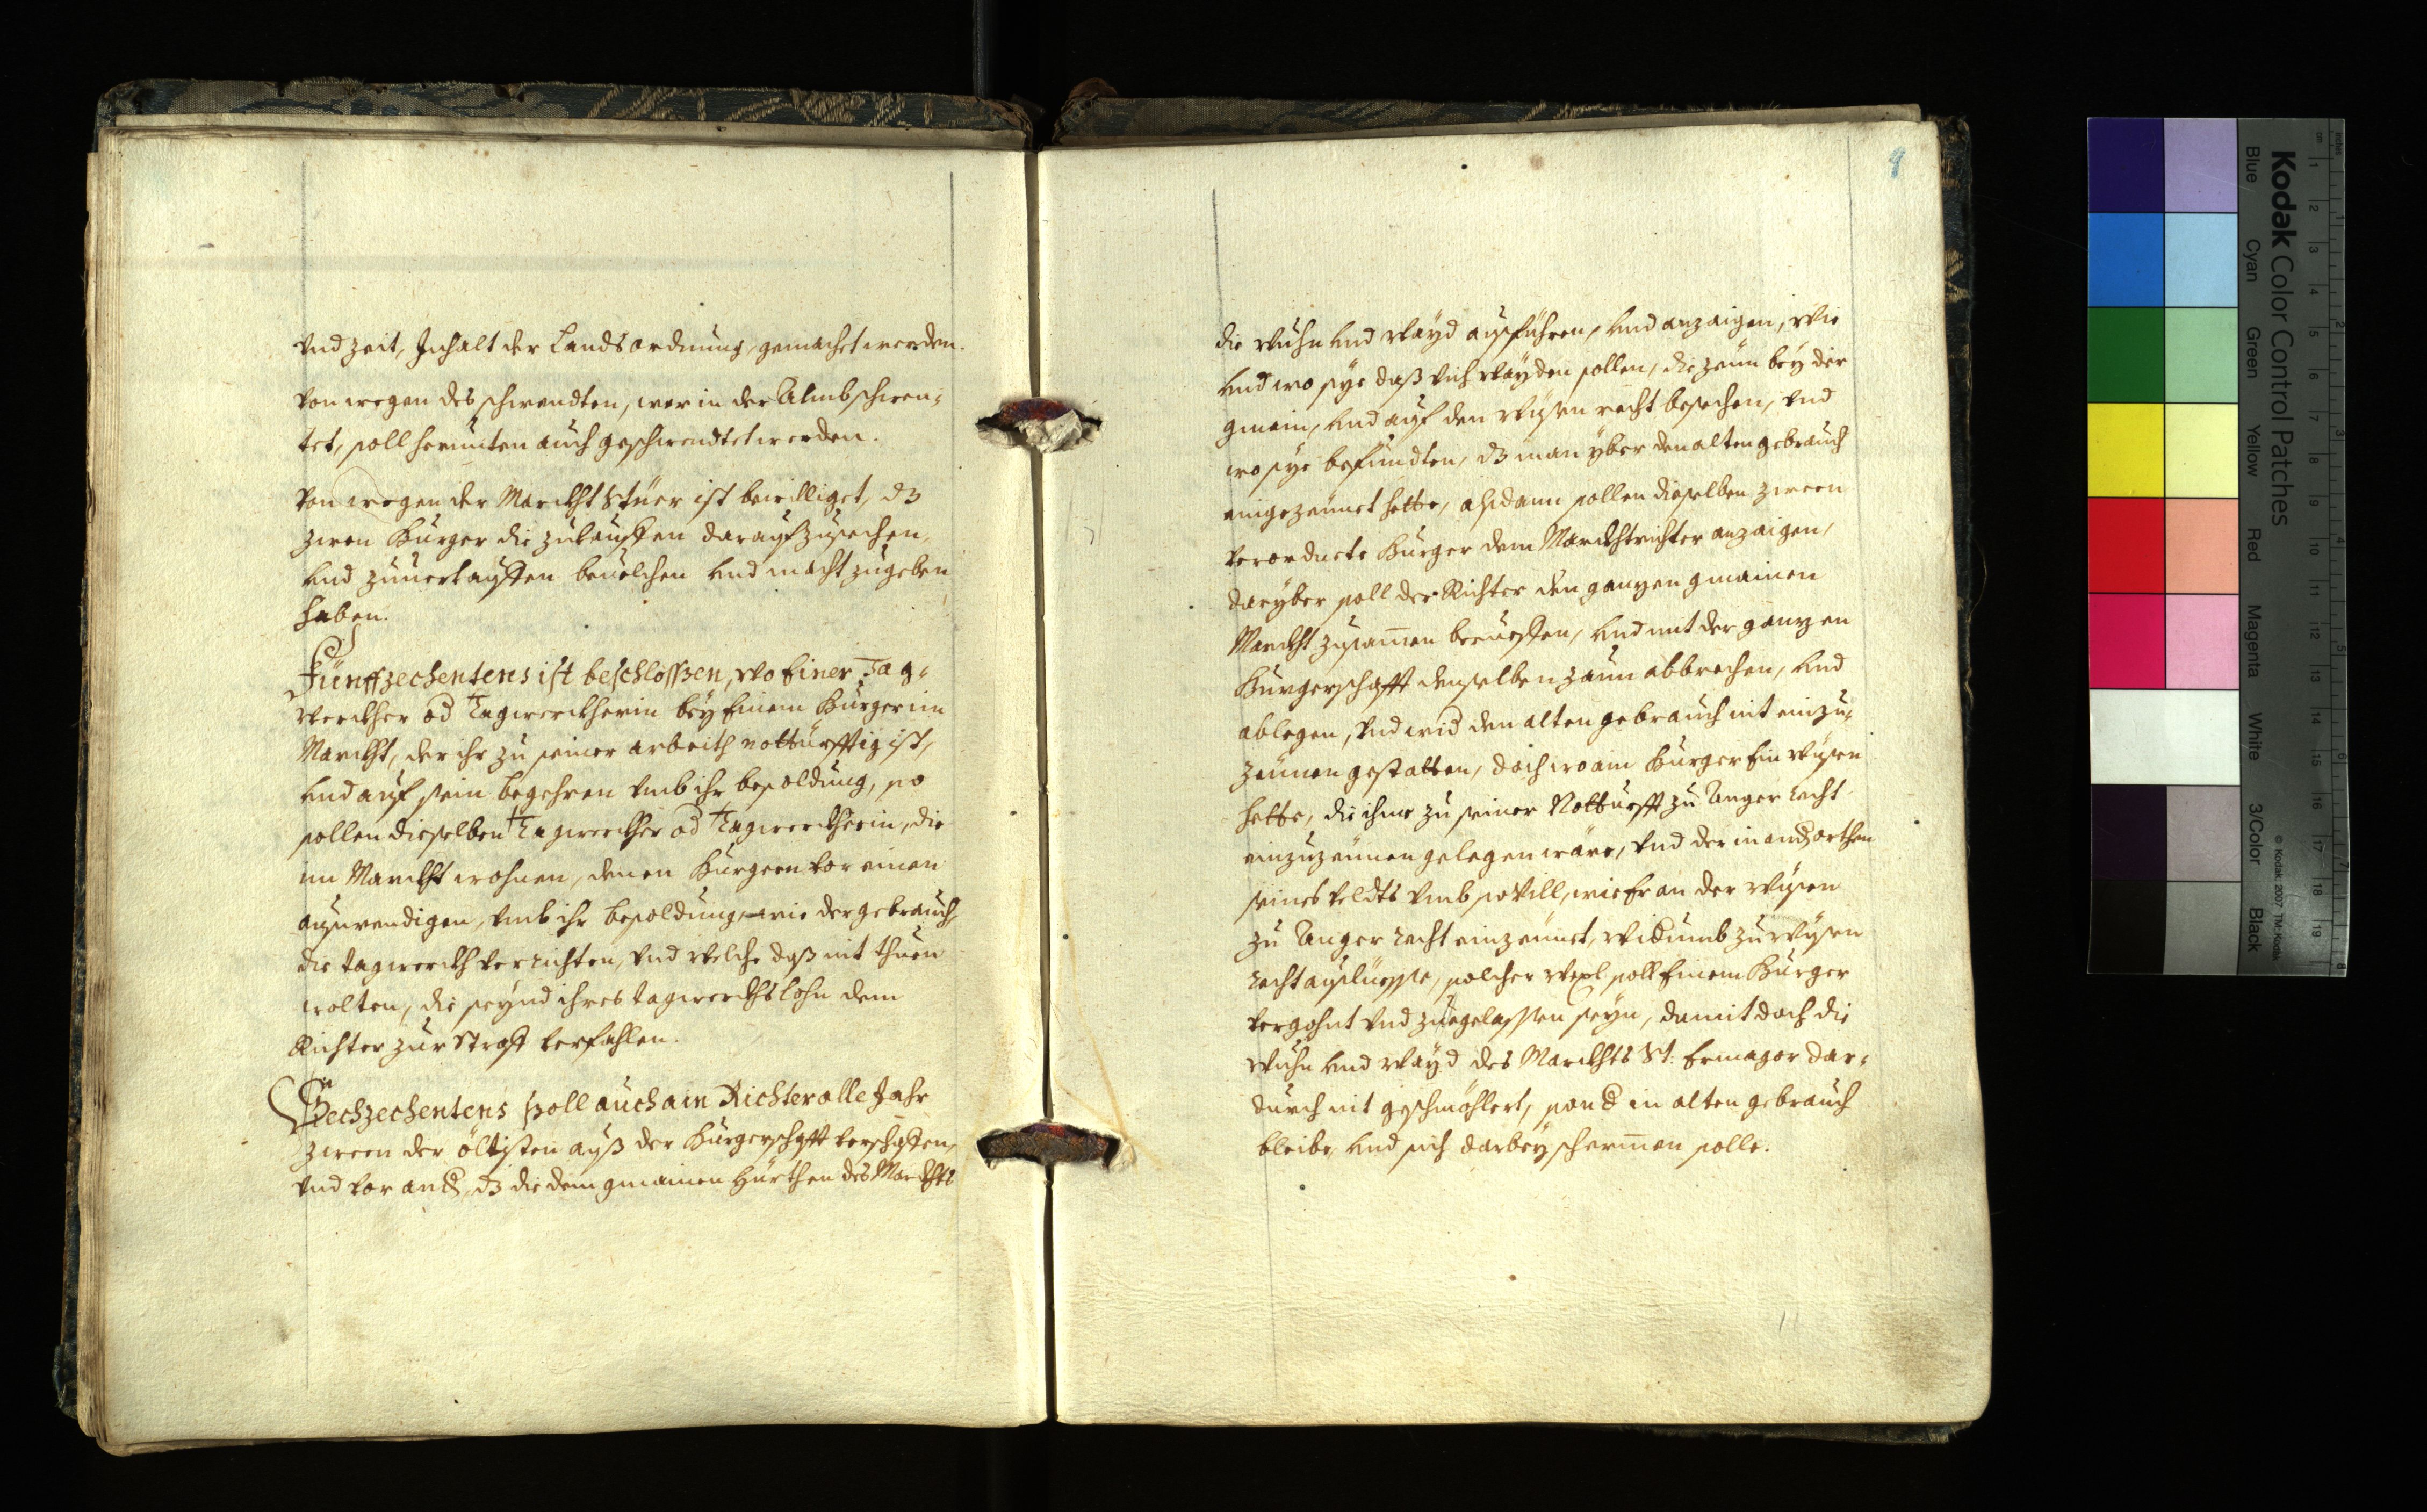 Vnd zeit, Inhalt der Landtsordnung, gemachet werden.
Von wegen des schwendten, wer in der Almb schwen¬
tet, soll herunten auch geschwendtet werden.
Von wegen der Marckht Stüer ist bewilliget, dz
zwen Burger die zukauffen darauf zusechen,
vnd zuuerkauffen beuolchen vnd macht zugeben
haben.
Fünffzechentens ist beschlosszen, wo Einer Tag¬
werckher od Tagwerckherin bey Einem Burger im
Marckht, der ihr zu seiner arbeith notturfftig ist,
vnd auf sein begehren vmb ihr besoldung, so
sollen dieselben Tagwerckher od Tagwerckherin, die
im Marckht wohnen, denen Burgern vor einen
auswendigen, vmb ihr besoldung, wie der gebrauch,
die tagwerckh verrichten, Vnd welche daß nit thuen
wolten, die seynd ihres tagwerckhs lohn dem
Richter zur Straff verfahlen.
Sechzechentens soll auch ain Richter alle Jahr
zween der öltisten auß der Burgerschafft verschaffen,
vnd vor and, dz die dem gmainen Hürthen des Marckhts
9
die Wuhn vnd Wayd ausführen, vnd anzaigen, wie
vnd wo sye daß vich wayden sollen, die zeün bey der
gmain, vnd auf den Wysen recht besechen, vnd
wo sye befundten, dz man yber den alten gebrauch
eingezeünet hette, alßdann sollen dieselben zween
verordnete Burger dem Marckhtrichter anzaigen,
daryber soll der Richter den ganzen gmainen
Marckht zusamen berueffen, vnd mit der ganzen
Burgerschafft denselben zaun abbrechen, vnd
ablegen, vnd wid den alten gebrauch nit einzu¬
zeünen gestatten, doch wo ain Burger Ein Wysen
hette, die ihme zu seiner Notturfft zu Anger recht
einzuzeünen gelegen wäre, vnd der in and orthen
seines veldts vmb so vill, wie Er an der Wysen
zu Anger recht einzeünet, widumb zu Wysen
recht ausliesse, solcher Wexl soll Einem Burger
vergohnt vnd zuegelassen seyn, damit doch die
Wuhn vnd Wayd des Marckhts St: Ermagor dar¬
durch nit geschmöhlert, sond in alten gebrauch
bleibe, vnd sich darbey schermen solle.
Kodak Color Control Patches
© Kodak, 2007 TM: Kodak
Blue
Cyan
Green
Yellow
Red
Magenta
White
3/Color
Black